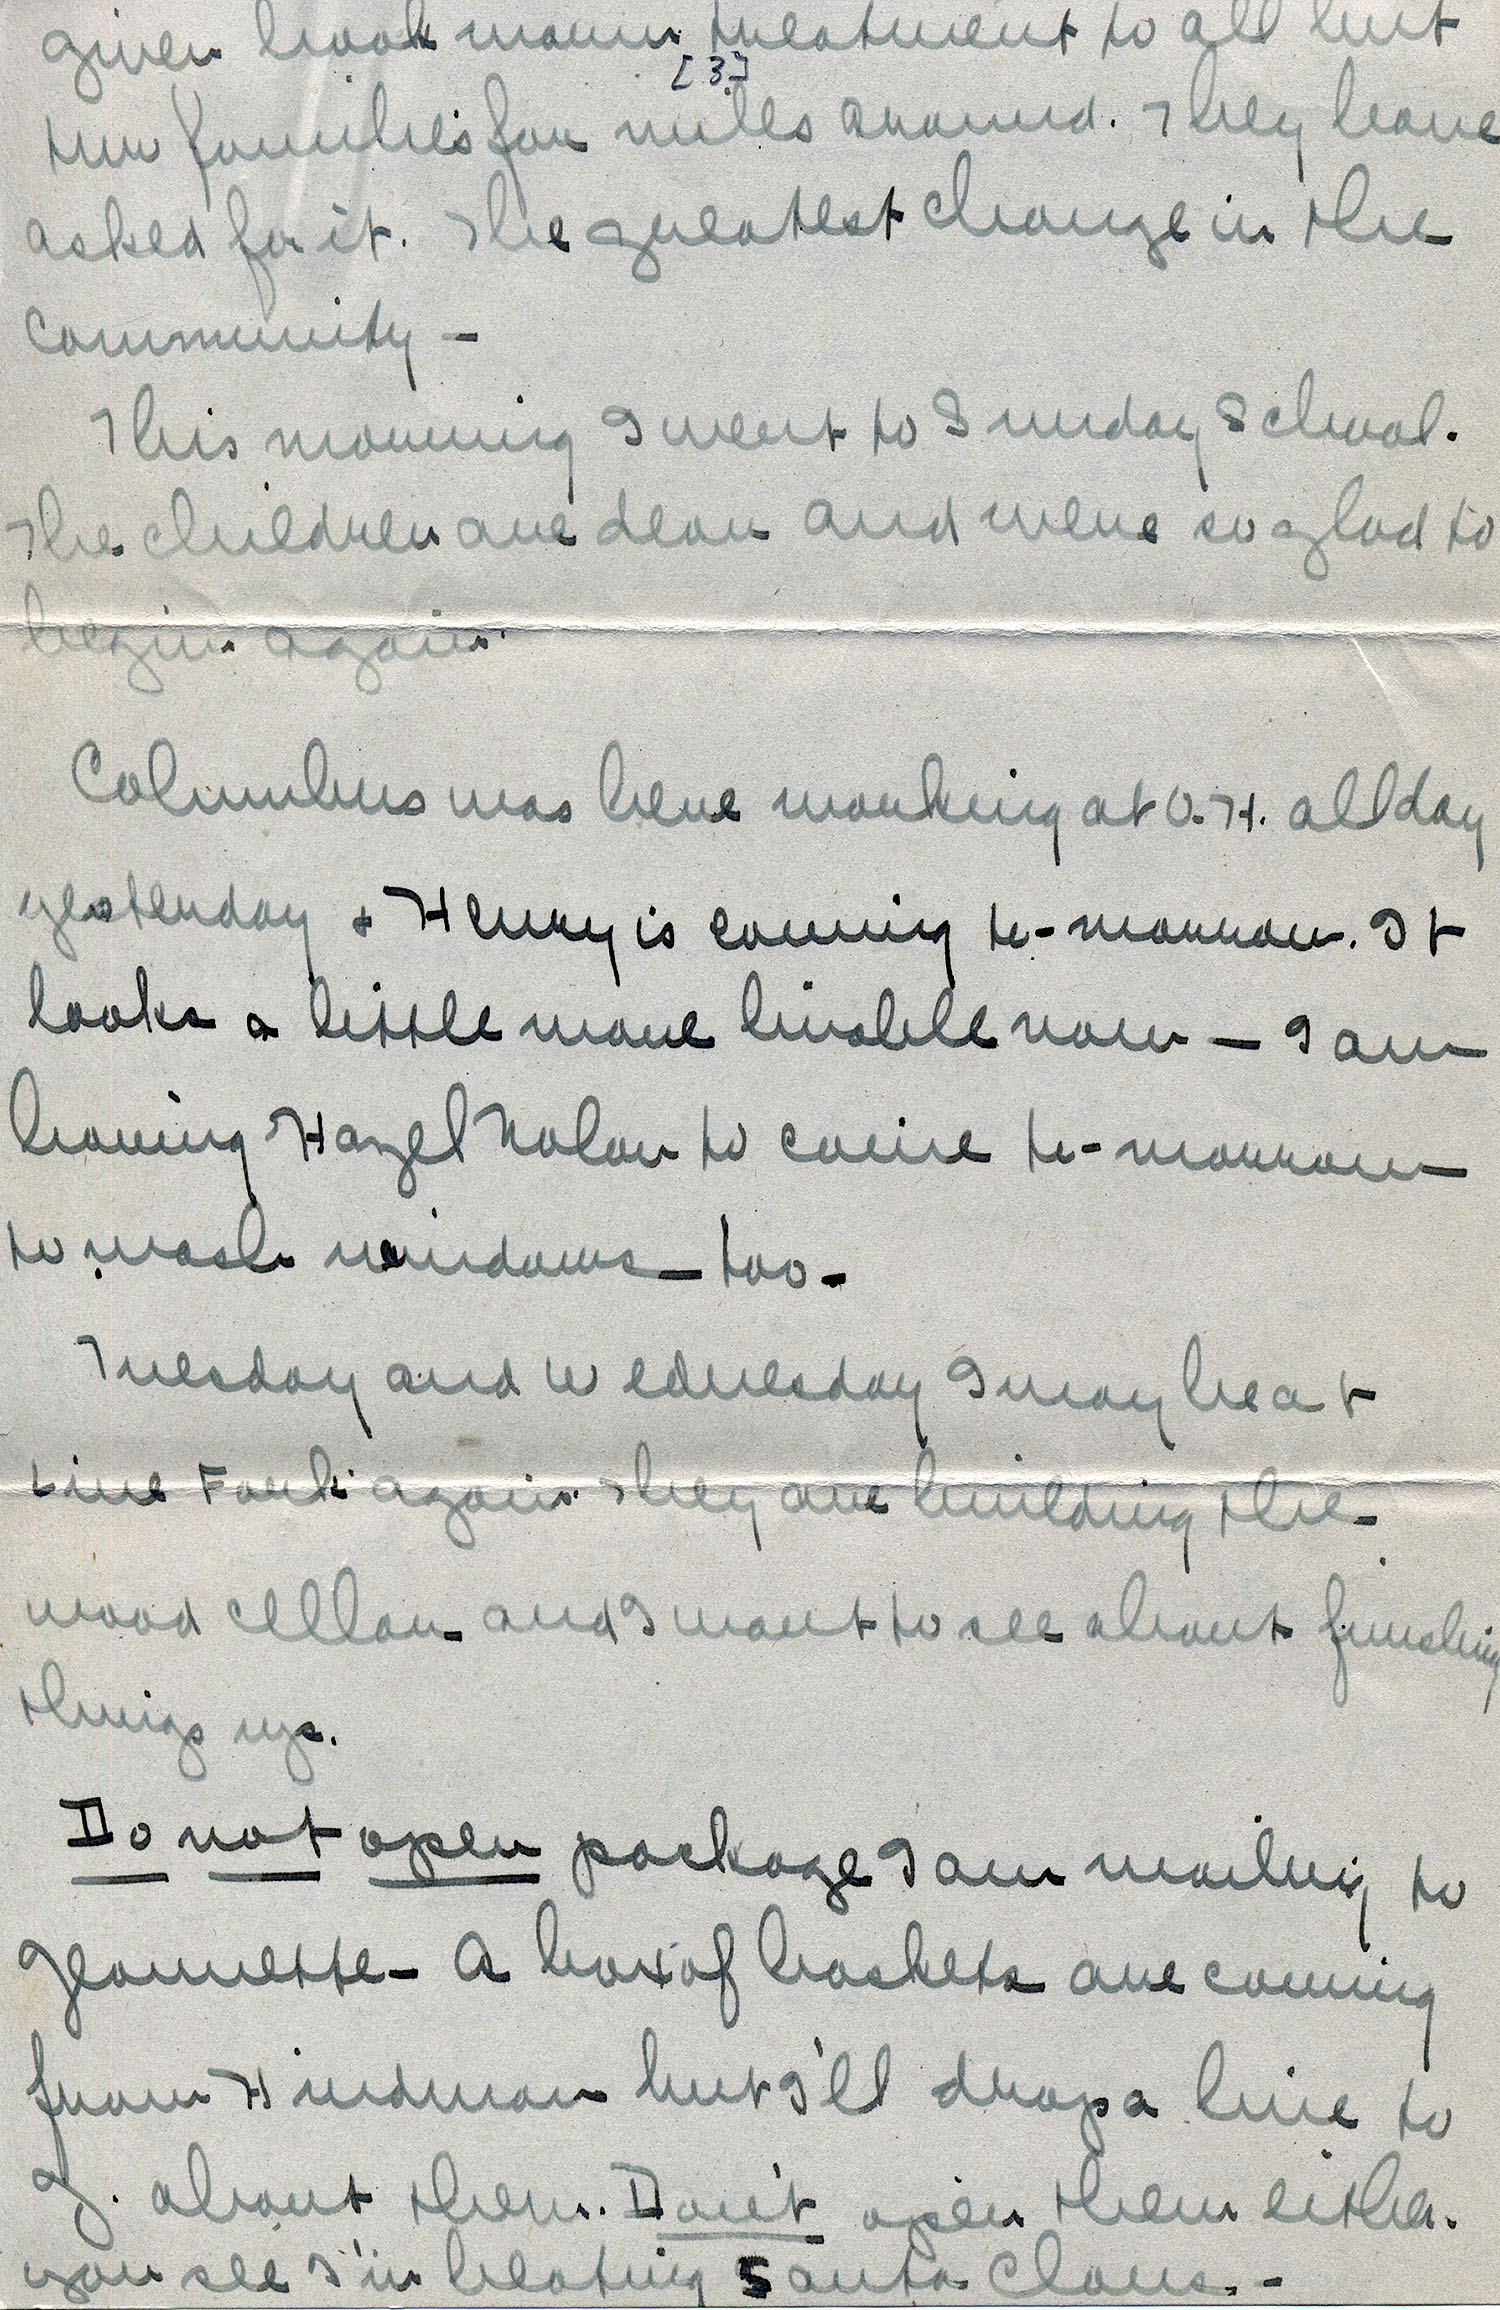 given hook worm treatment to all but
[3]
two families for miles around. They have
asked for it. The greatest change in the
community –
This morning I went to Sunday School.
The children are dear and were so glad to
begin again.
Columbus was here working at O.H. all day
yesterday + Henry is coming to-morrow. It
looks a little more livable now – I am
having Hazel Nolan to come to-morrow
to wash windows – too –
Tuesday and Wednesday I may be at
Line Fork again. They are building the
wood cellar and I want to see about finishing
things up.
Do not open package I am mailing to
Jeannette – A box of baskets are coming
from Hindman but I'll drop a line to
J. about them. Don't open them either.
you see I'm beating Santa Claus. –